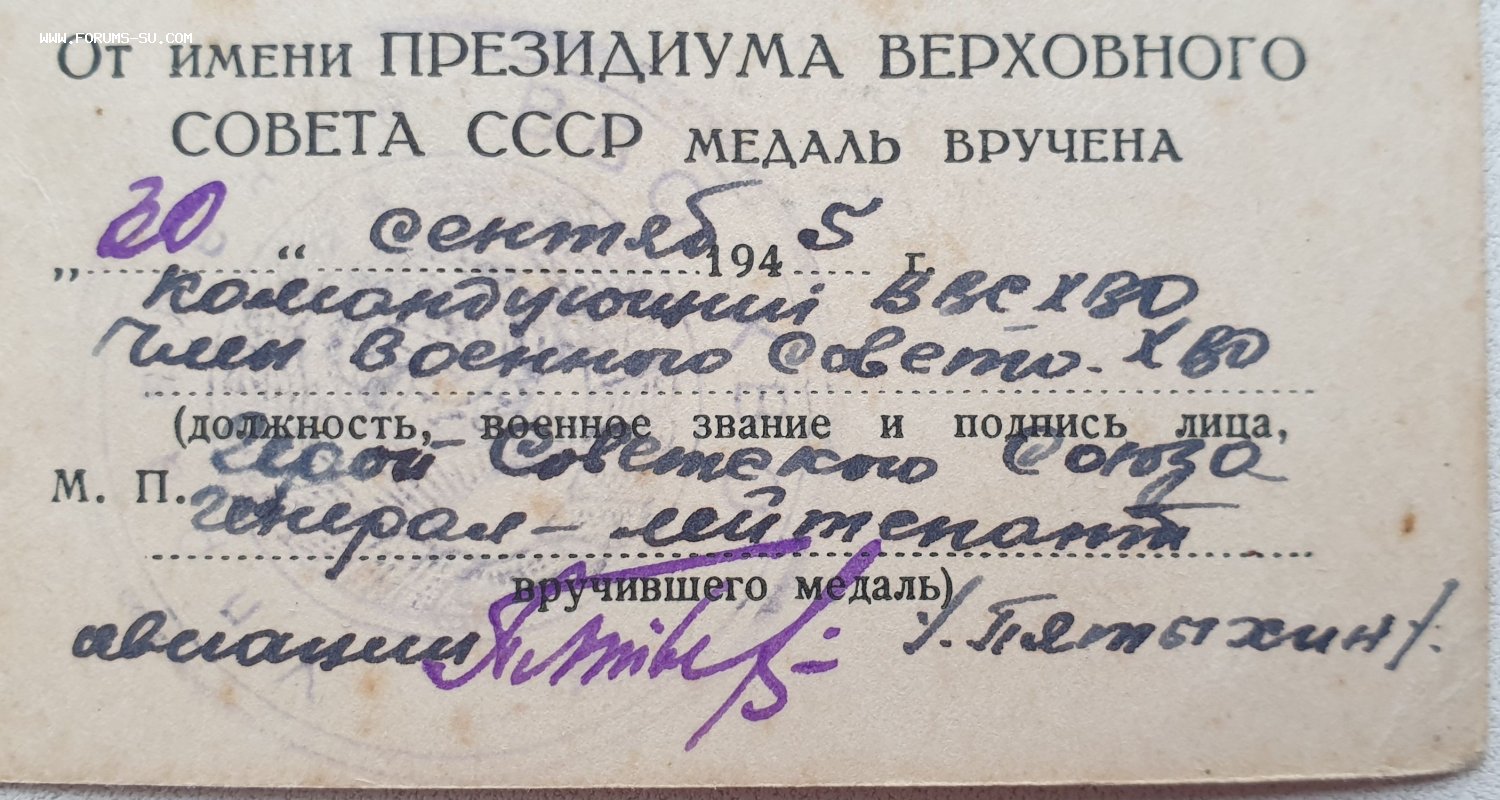 WWW.FORUMS-SU.COM
От имени ПРЕЗИДИУМА ВЕРХОВНОГО
СОВЕТА СССР МЕДАЛЬ ВРУЧЕНА
„30“ сентяб 1945 г.
Командующий ВВС ХВО
Член Военного Совета. ХВО
(должность, военное звание и подпись лица,
Герой Советского Союза
М. П.
Генерал-лейтенант
вручившего медаль)
авиации /.Пятыхин/.